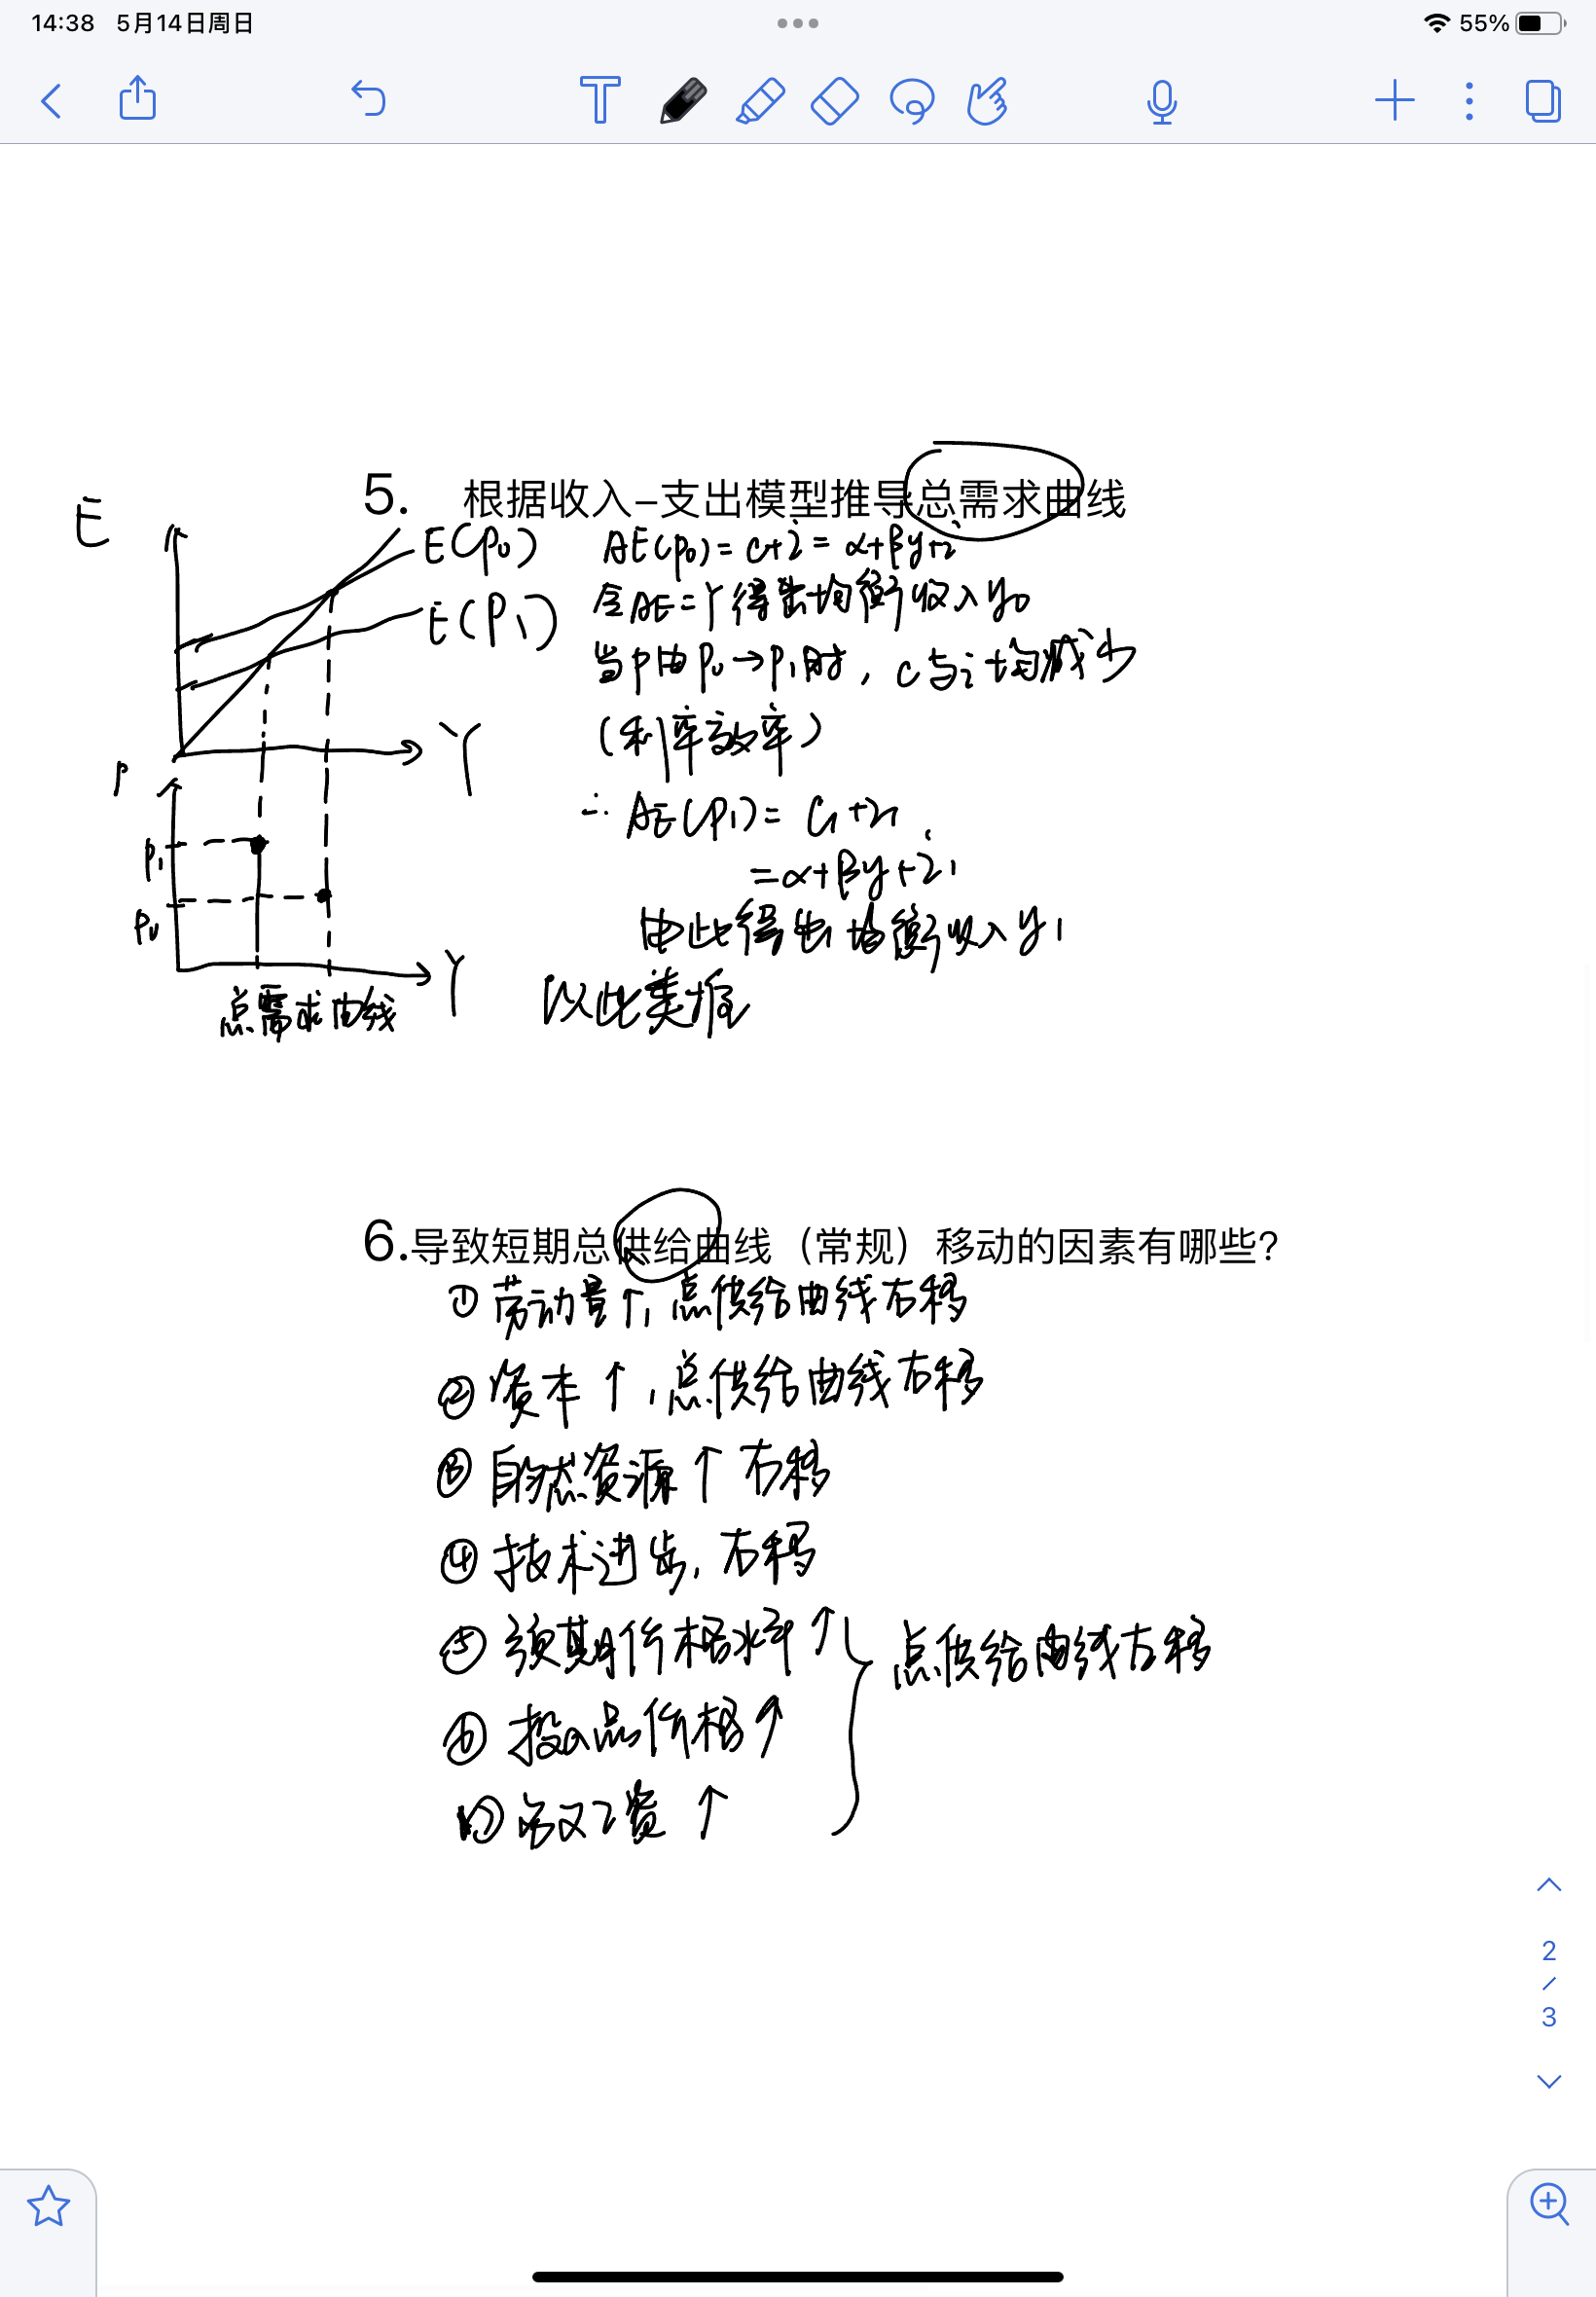 14:38 5月14日周日
55%
5. 根据收入-支出模型推导总需求曲线
E
E(P₀)
E(P₁)
Y
P
P₁
P₀
Y
总需求曲线
AE(P₀) = c+i = α+βy+i
令AE=Y得出均衡收入y₀
当P由P₀→P₁时，c与i均减少
(利率效率)
∴ AE(P₁) = C₁+i₁
=α+βy+i₁
由此得出均衡收入y₁
以此类推
6.导致短期总供给曲线（常规）移动的因素有哪些?
① 劳动量↑，总供给曲线右移
② 资本↑，总供给曲线右移
③ 自然资源↑ 右移
④ 技术进步，右移
⑤ 预期价格水平↑
⑥ 投入品价格↑
⑦ 名义工资↑
总供给曲线左移
2
/
3